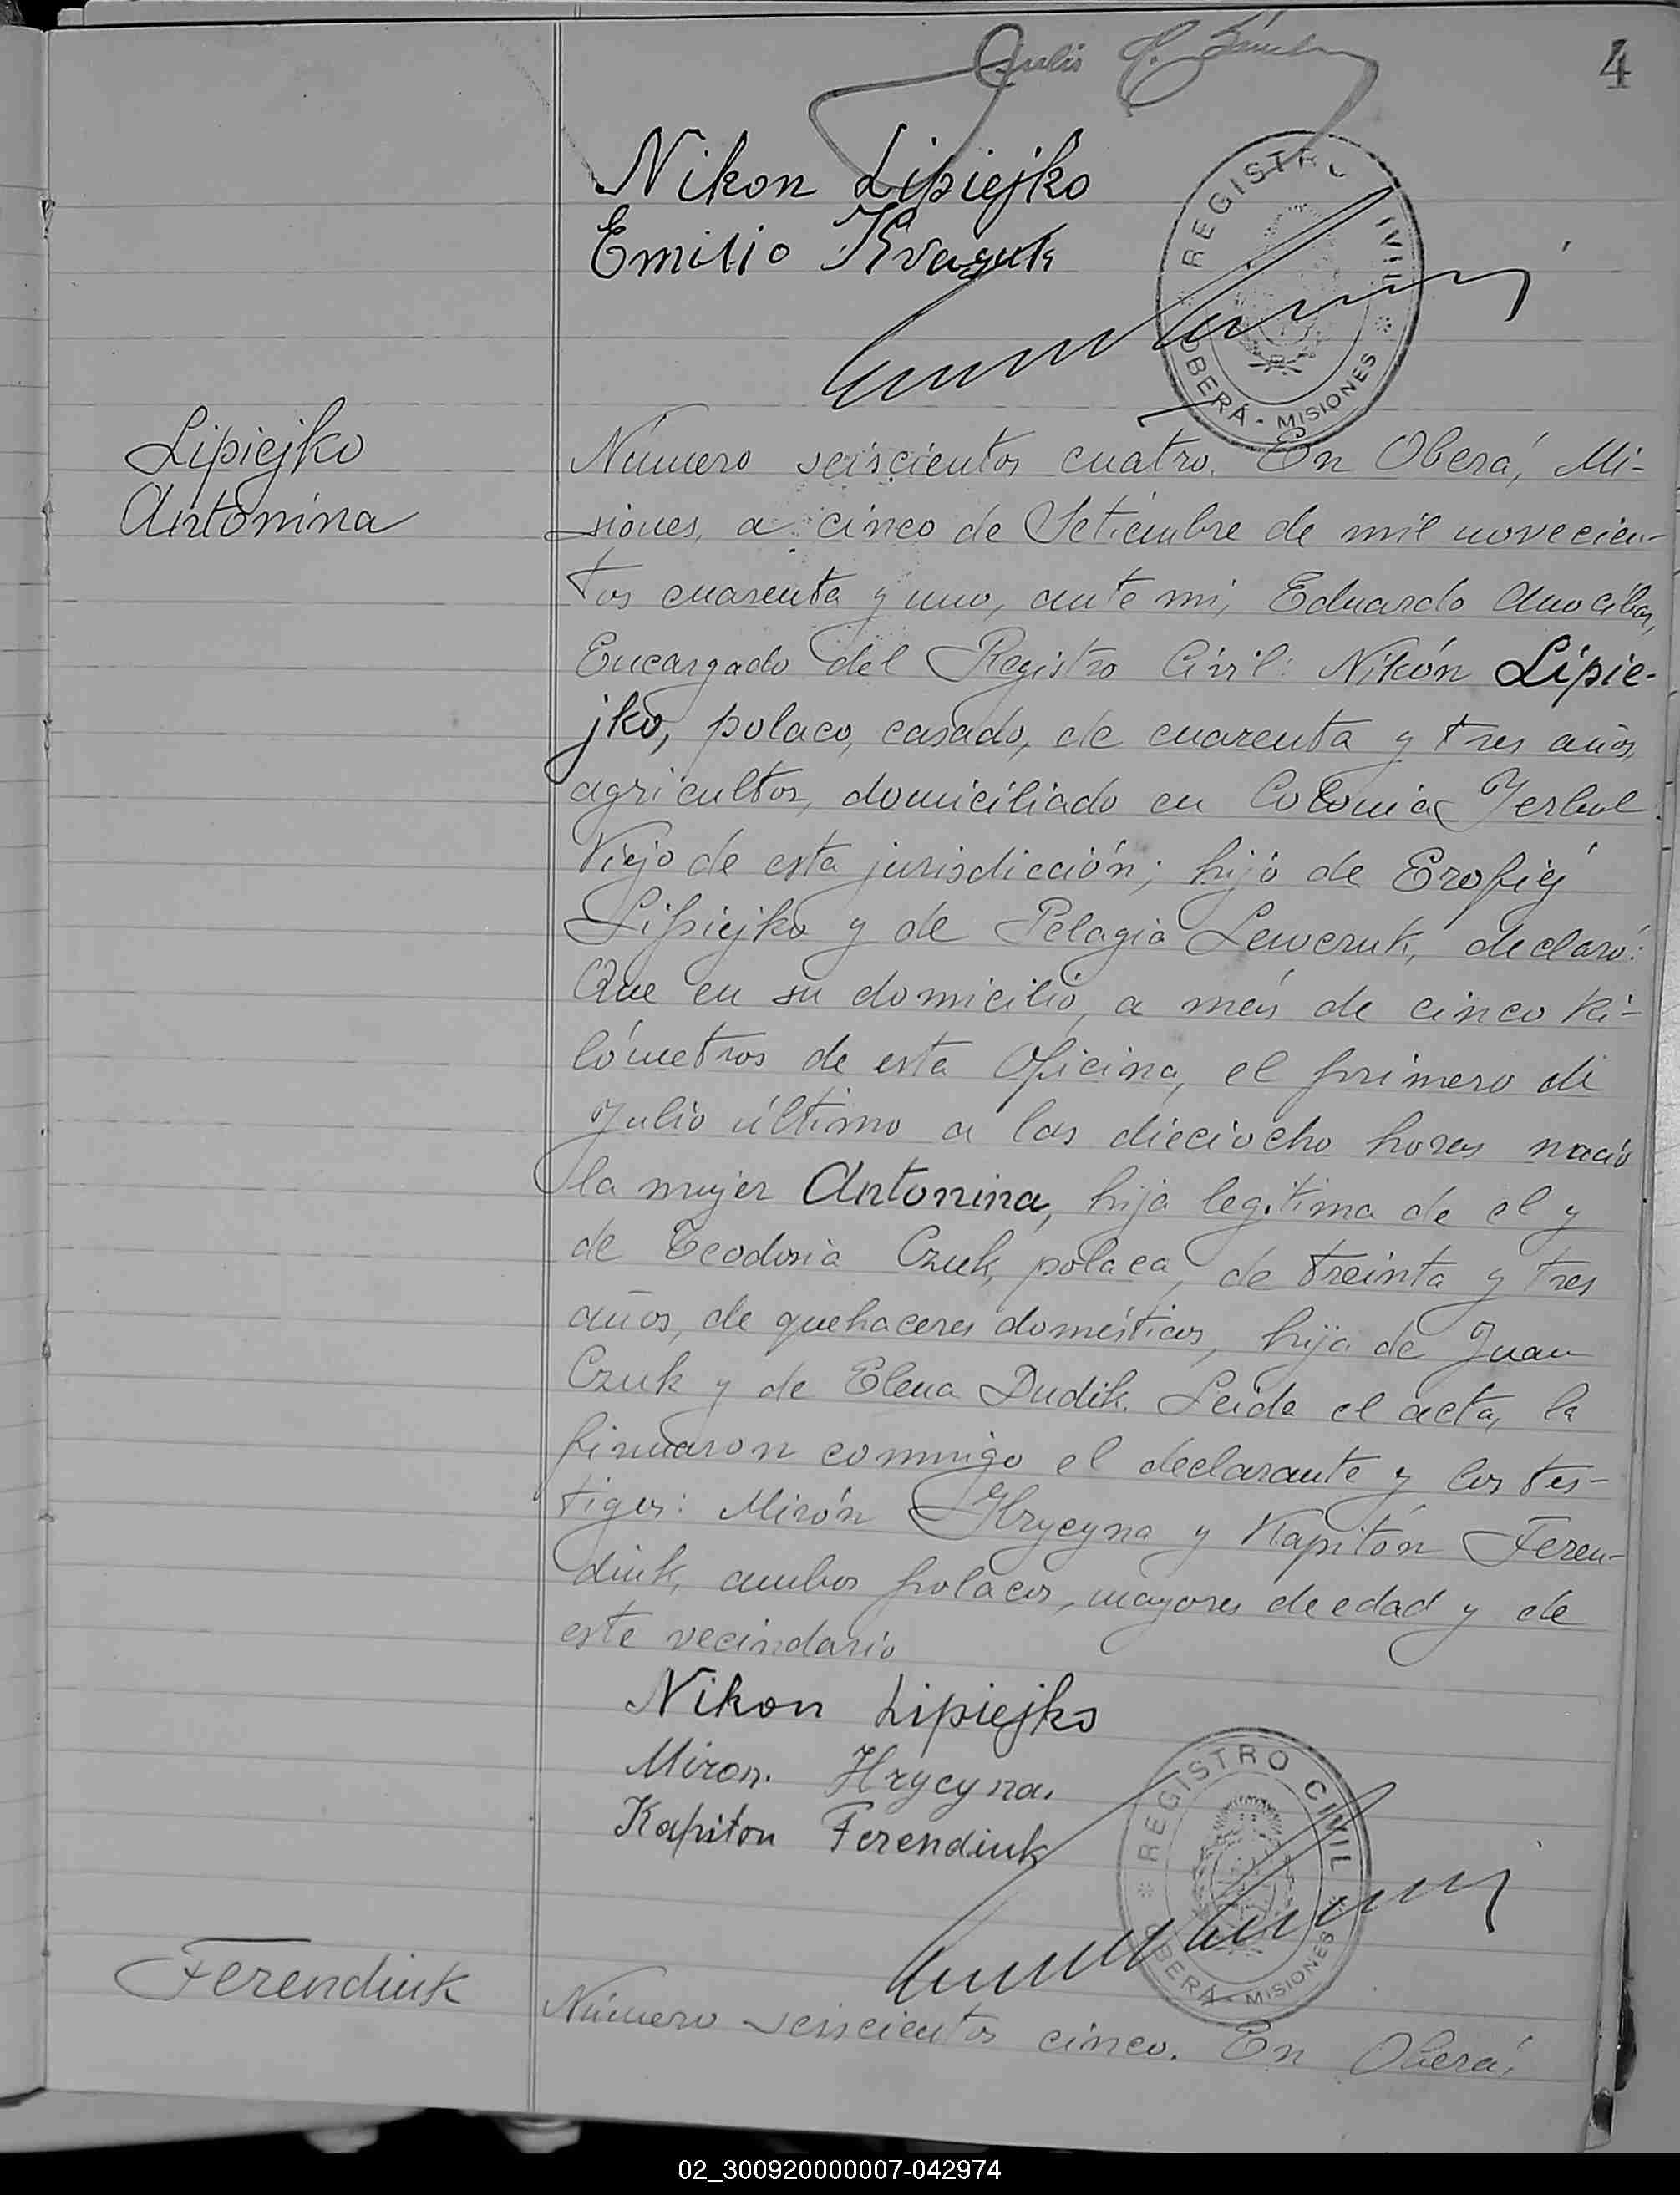 4
Nikon Lipiejko
Emilio
REGISTRO CIVIL
OBERÁ - MISIONES
Lipiejko
Antonina
Número seiscientos cuatro. En Oberá, Mi-
siones, a cinco de Setiembre de mil novecien-
tos cuarenta y uno, ante mi, Eduardo
Encargado del Registro Civil: Nikón Lipie-
jko, polaco, casado, de cuarenta y tres años,
agricultor, domiciliado en Colonia Yerbal
Viejo de esta jurisdicción; hijo de Erofiej
Lipiejko y de Pelagia Lewczuk, declaró:
Que en su domicilio, a más de cinco ki-
lómetros de esta Oficina, el primero de
Julio último a las dieciocho horas nació
la mujer Antonina, hija legitima de el y
de Teodosia Czuk, polaca, de treinta y tres
años, de quehaceres domésticos, hija de Juan
Czuk y de Elena Dudik. Leida el acta, la
firmaron conmigo el declarante y los tes-
tigos: Mirón Hrycyna y Kapitón Feren-
diuk, ambos polacos, mayores de edad y de
este vecindario
Nikon Lipiejko
Miron. Hrycyna.
Kapiton Ferendiuk
REGISTRO CIVIL
OBERÁ - MISIONES
Ferendiuk
Número seiscientos cinco. En Oberá,
02_300920000007-042974